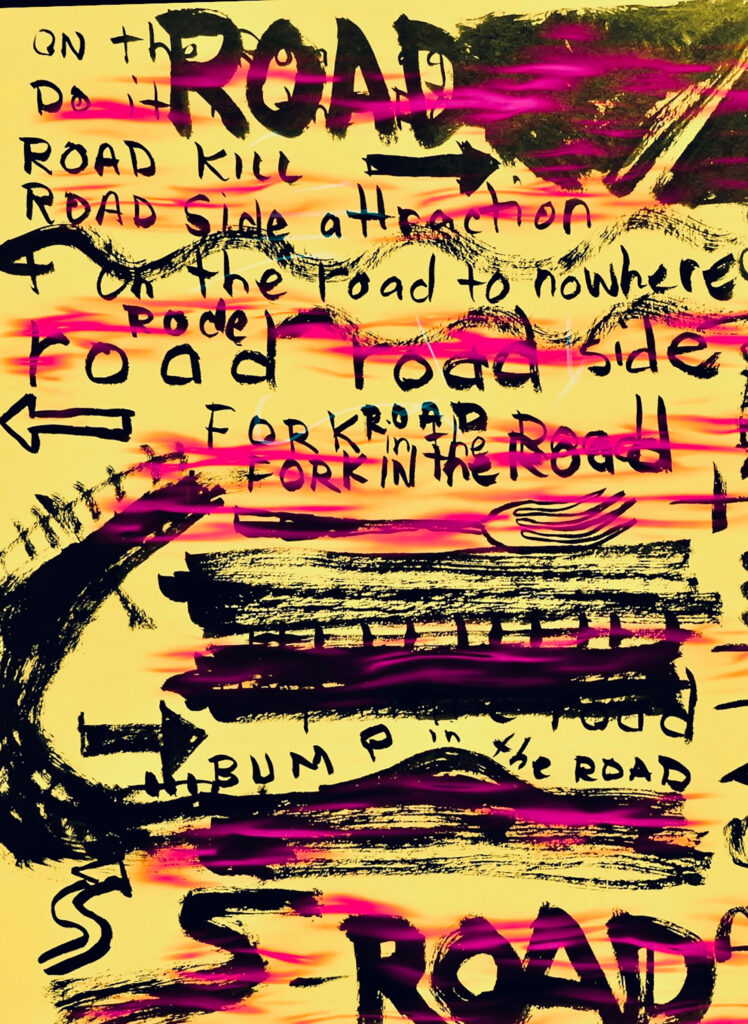 ON the
ROAD
Do it
ROAD KILL
ROAD Side attraction
on the road to nowhere
RODE
road road side
FORK ROAD
in the
FORK IN the Road
road
BUMP in the ROAD
S-ROAD